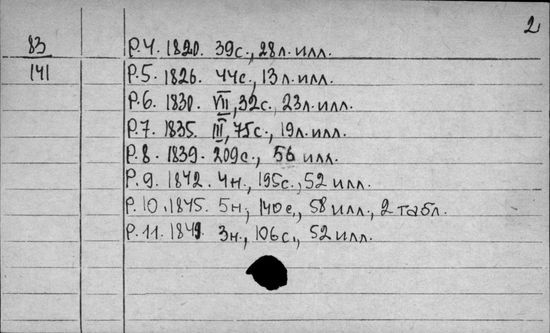 2
83 P.4. 1820. 39с., 28л. илл.
141 P.5. 1826. 44с., 13л. илл.
P.6. 1830. VII, 32с., 23л. илл.
P.7. 1835. III, 75с., 19л. илл.
P.8. 1839. 209с., 56 илл.
P.9. 1842. 4н., 195с., 52 илл.
P.10. 1845. 5н., 140с., 58 илл., 2 табл.
P.11. 1849. 3н., 106с., 52 илл.